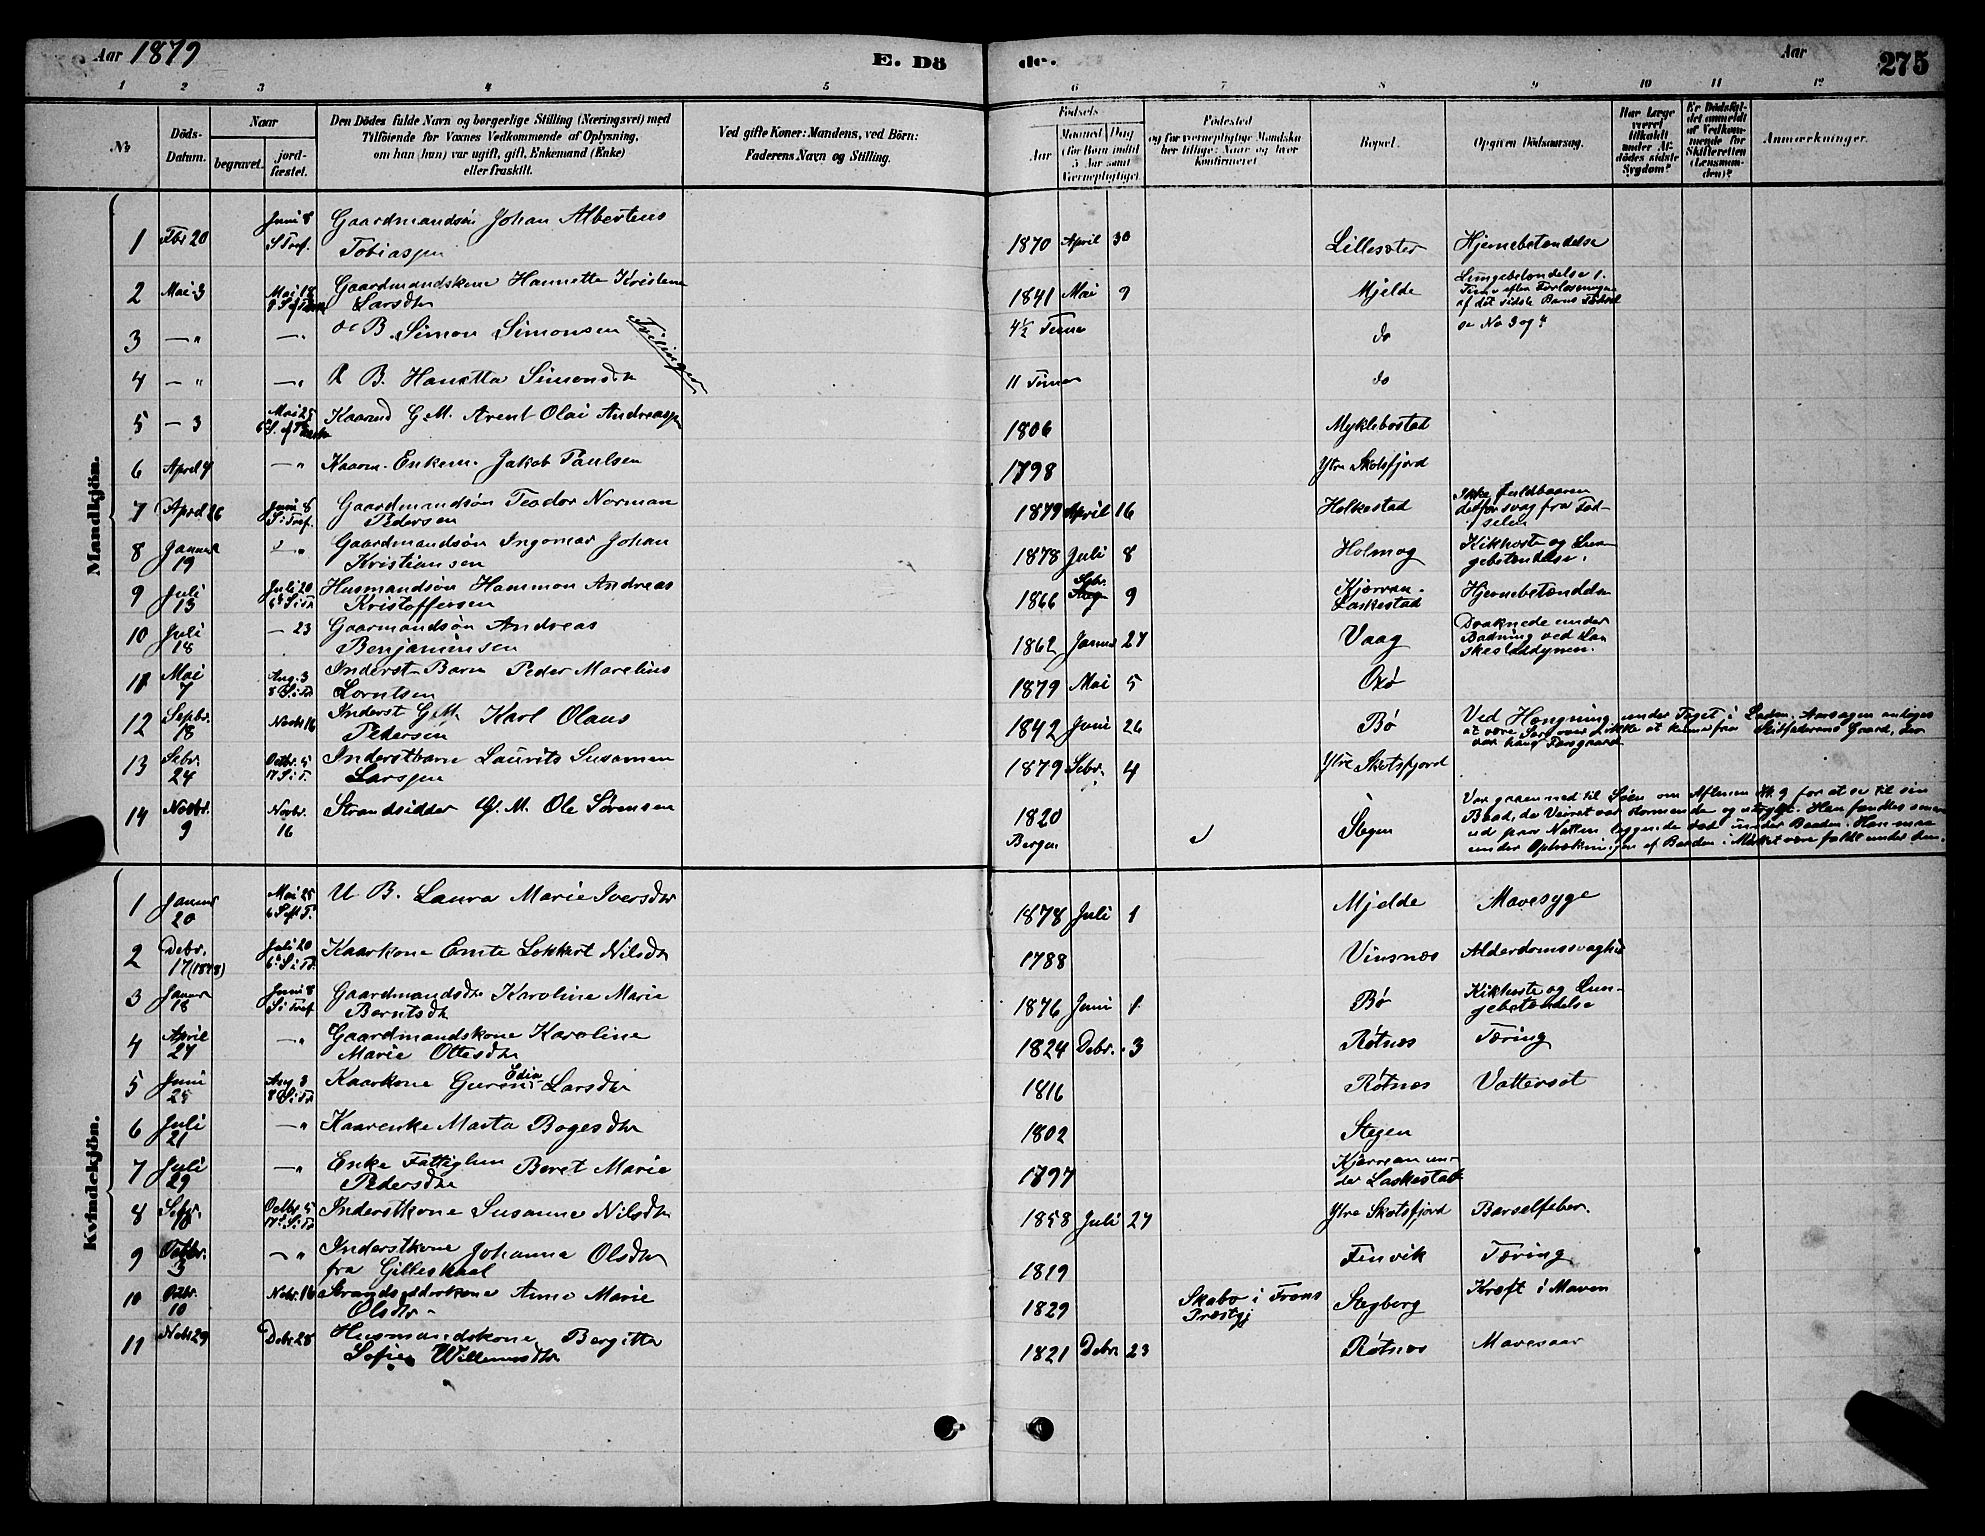 Aar 1879
E. Dö
de.
Aar
275
1 2 3 4 5 6 7 8 9 10 11 12
No
Döds-Datum.
Naar
begravet.
jord-fæstet.
Den Dödes fulde Navn og borgerlige Stilling (Næringsvei) med
Tilföiende for Voxnes Vedkommende af Oplysning,
om han (hun) var ugift, gift, Enkemand (Enke)
eller fraskilt.
Ved gifte Koner: Mandens, ved Börn:
Faderens Navn og Stilling.
Födsels
Aar
Maaned
(for Barn indtil 5 Aar samt Værnepligtige).
Dag
Födested
og for værnepligtige Mandska-
ber tillige: Naar og hvor
Konfirmeret
Bopæl.
Opgiven Dödsaarsag.
Har Læge
været
tilkaldt
under Af-
dödes sidste
Sygdom?
Er Dödsfal-
det anmeldt
af Vedkom-
mende for
Skifteretten
(Lensman-
den)?
Anmærkninger.
Mandkjön.
1 Fbr 20 Juni 8 Gaardmandsön Johan Albertens
Tobiassen 1870 April 30 Lilleseter Hjernebetændelse
2 Mai 3 Mai 18 Gaardmandskone Hannette Kristene
Larsdtr 1841 Mai 9 Mjelde Lungebetændelse 1.
Time efter Forløsningen
af det sidste Barn
se No 3 og 4
3 — " — B. Simon Simonsen Tvillinger 4½ Timer do
4 — " — " B. Hanetta Simonsdtr 11 Timer do
5 — 3 Mai 25 Kaarmd G.M. Arent Olai Andreassen 1806 Myklebostad
6 April 4 — " Kaarm. Enkem. Jakob Paulsen 1798 Ytre Skotsfjord
7 April 26 Juni 8 Gaardmandsön Teodor Norman
Pedersen 1879 April 16 Helkestad Ikke fuldbaaren
derfor svag fra Fød-
selen
8 Januar 19 — " Gaardmandsön Ingomar Johan
Kristiansen 1878 Juli 8 Holmog Kikhoste og Lun-
gebetændelse.
9 Juli 13 Juli 20 Husmandsön Hammon Andreas
Kristoffersen 1866 9 Kjørvan
Laskestad Hjernebetændelse
10 Juli 18 — 23 Gaarmandsön Andreas
Benjaminsen 1862 Januar 27 Vaag Druknede under
Badning ved La-
skestaddynen.
11 Mai 7 Aug. 3 Inderst Barn Peder Marelius
Lorntsen 1879 Mai 5 Oxö
12 Sepbr. 18 Novbr 16 Inderst G.M. Karl Olaus
Pedersen 1842 Juni 26 Bø Ved Hængning under Taget i Laden. Aarsagen antages
at være Sorg over ikke at kunne fra Skifjorden Gaard, der
var hans Farsgaard
13 Sebr. 24 Octbr. 5 Inderstbarn Laurits Susannen
Larssen 1879 Sebr. 4 Ytre Skotsfjord
14 Novbr. 9 Novbr. 16 Strandsidder G.M. Ole Sørensen 1820
Bergen Stegen Var gaaen ned til Søen om Aftenen Kl. 9 for at se til sin
Baad, da Veiret var stormende og . Han fandtes senere
ud paa Natten liggende død under Baaden. Han maa
under Optrækningen af Baaden i Mørket være faldt under den.
Kvindekjön.
1 Januar 20 Mai 25 U B. Laura Marie Iversdtr 1878 Juli 1 Mjelde Mavesyge
2 Debr. 17 (1878) Juli 20 Kaarkone Emte Lokkert Nilsdtr 1788 Vinsnes Alderdomssvaghed
3 Januar 18 Juni 8 Gaardmandsdtr Karoline Marie
Berntsdtr 1876 Juni 1 Bø Kikhoste og Lun-
gebetændelse
4 April 27 — " Gaardmandskone Karoline
Marie Ottesdtr 1824 Debr. 3 Røtnes Tæring
5 Juni 25 Aug 3 Kaarkone Guren Edia Larsdtr 1816 Røtnes Vattersot
6 Juli 21 — " Kaarenke Marta Bogesdtr 1802 Stegen
7 Juli 29 — " Enke Fattiglem Beret Marie
Pedersdtr 1797 Kjørvan un-
der Laskestad
8 Sebr. Octbr. 5 Inderstkone Susanna Nilsdtr 1858 Juli 27 Ytre Skotsfjord Barselfeber.
9 3 — " Inderstkone Johanna Olsdtr
fra Gilleskaal 1819 Finvik Tæring
10 Octbr. 10 Nobr. 16 Strandsidderkone Anne Marie
Olsdtr 1829 Skabo i Frons
Præstgj Stegberg Kræft i Maven
11 Nobr 29 Debr 28 Husmandskone Bergitta
Sofie Willumsdtr 1821 Debr 23 Røtnes Mavesaar